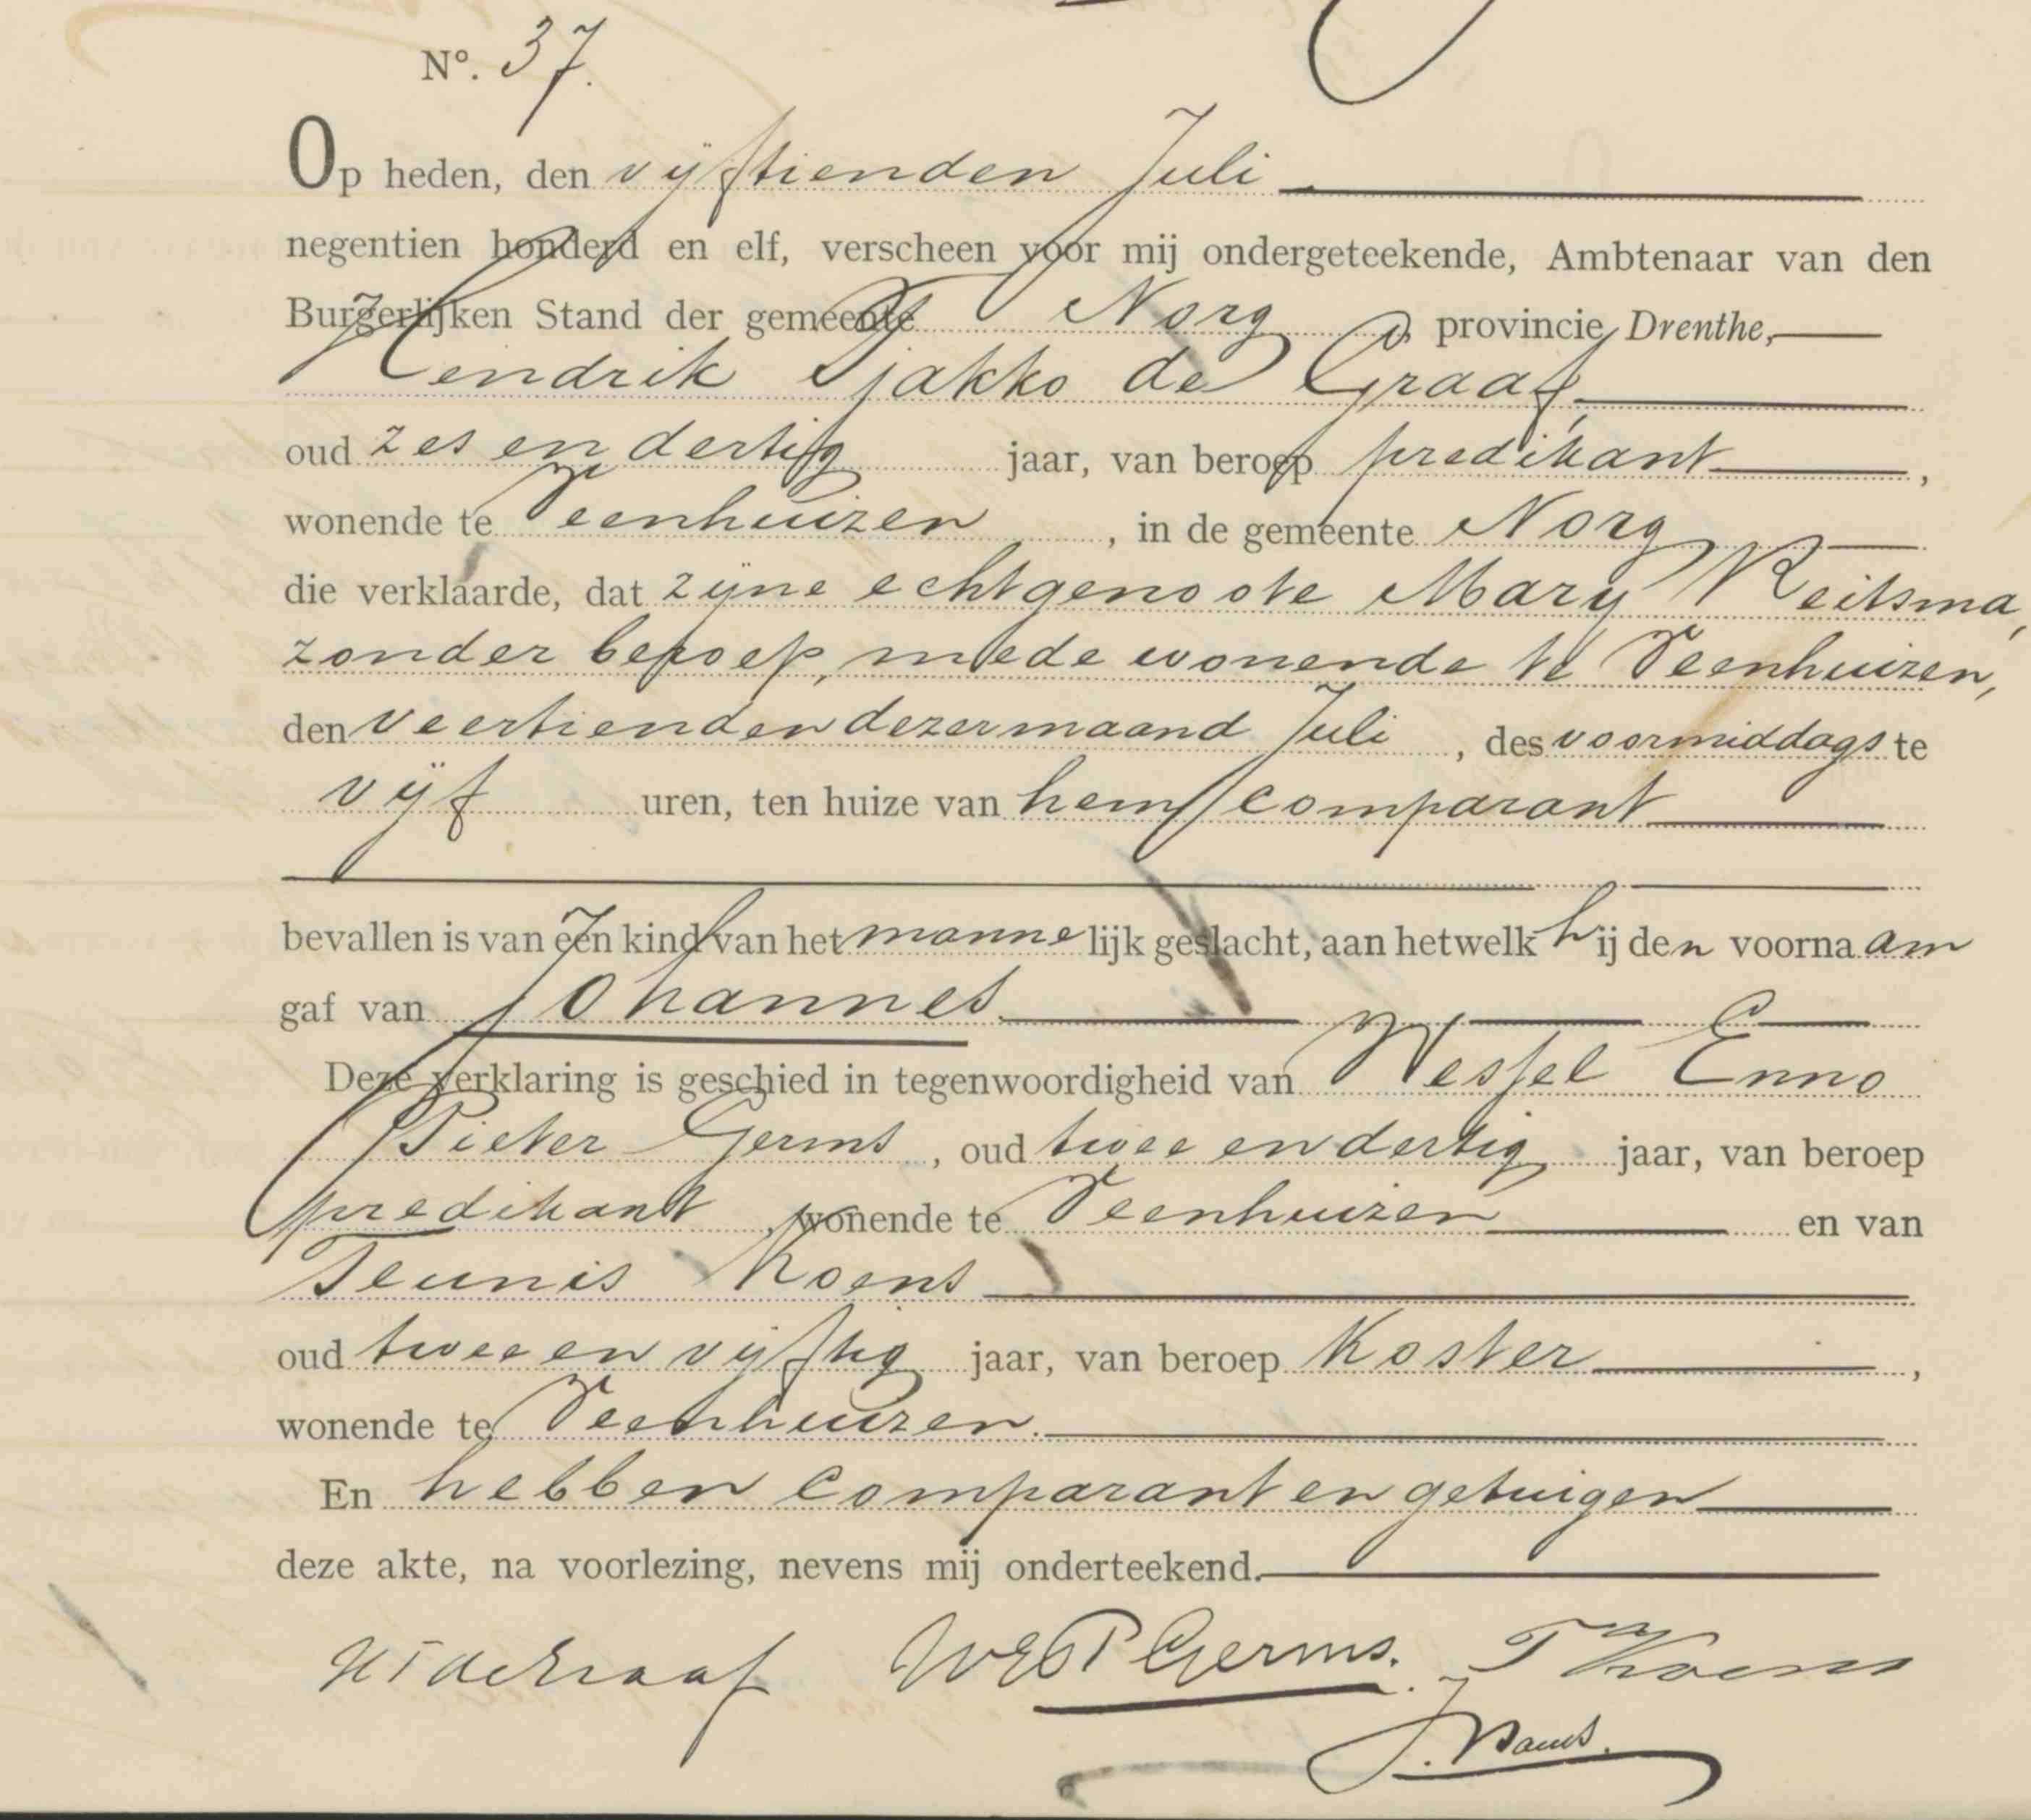 N°. 37.
Op heden, den vijftienden Juli
negentien honderd en elf, verscheen voor mij ondergeteekende, Ambtenaar van den
Burgerlijken Stand der gemeente Norg, provincie Drenthe,
Hendrik Tjakko de Graaf,
oud zes en dertig jaar, van beroep predikant,
wonende te Veenhuizen, in de gemeente Norg
die verklaarde, dat zijne echtgenoote Mary Reitsma,
zonder beroep, mede wonende te Veenhuizen,
den veertienden dezer maand Juli, des voormiddags te
vijf uren, ten huize van hem comparant
bevallen is van één kind van het mannelijk geslacht, aan hetwelk hij den voornaam
gaf van Johannes.
Deze verklaring is geschied in tegenwoordigheid van Wessel Enno
Pieter Germs, oud twee en dertig jaar, van beroep
predikant, wonende te Veenhuizen en van
Teunis Koens
oud twee en vijftig jaar, van beroep Koster,
wonende te Veenhuizen.
En hebben comparant en getuigen
deze akte, na voorlezing, nevens mij onderteekend.
HTdeGraaf WEP Germs. T Koens